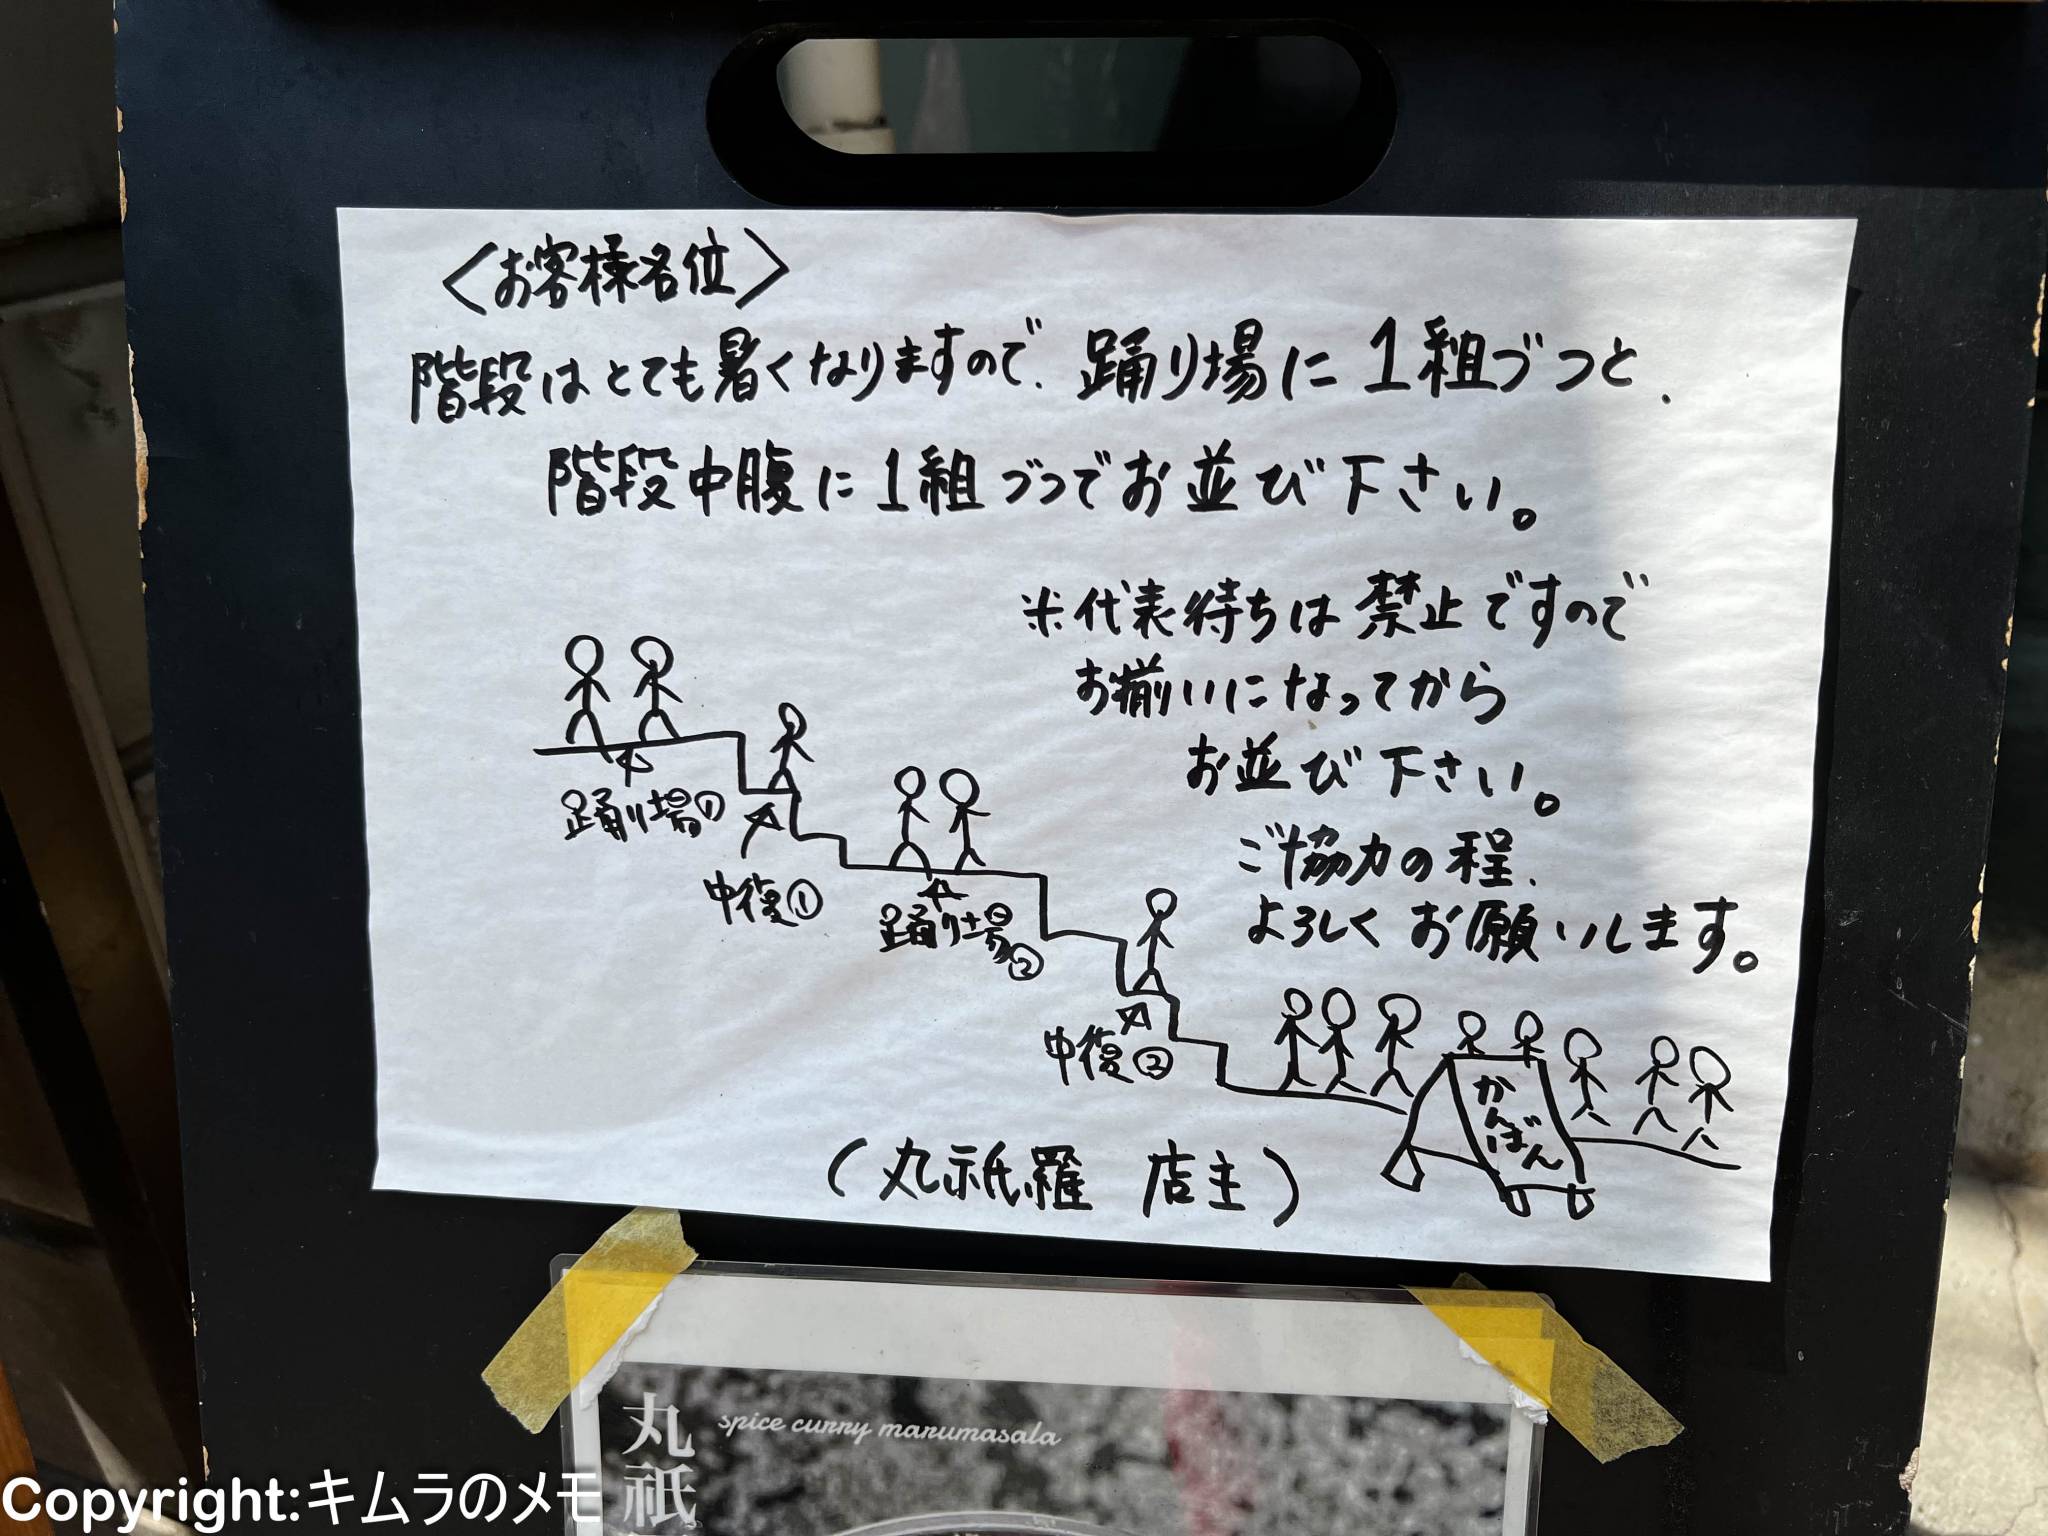 〈お客様各位〉
階段はとても暑くなりますので、踊り場に1組づつと、
階段中腹に1組づつでお並び下さい。
※代表待ちは禁止ですので
お揃いになってから
お並び下さい。
ご協力の程、
よろしくお願いします。
踊り場①
中復①
踊り場②
中復②
かんばん
(丸祇羅 店主)
丸祇
spice curry marumasala
Copyright:キムラのメモ